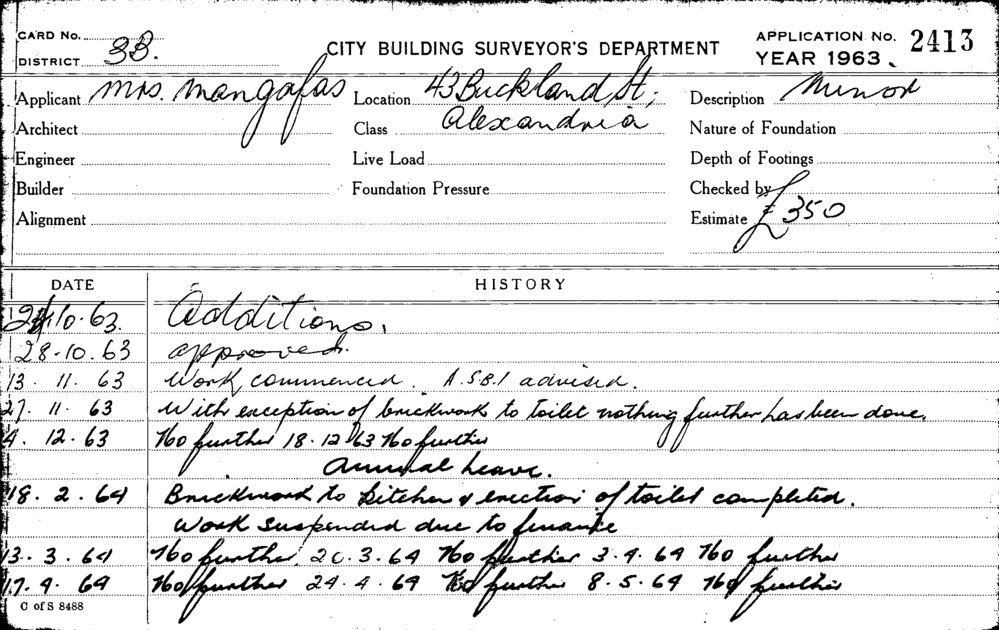 CARD No.
DISTRICT 3B.
CITY BUILDING SURVEYOR'S DEPARTMENT
APPLICATION No. 2413
YEAR 1963.
Applicant Mrs. Mangafas
Location 43 Buckland St;
Description Minor
Architect
Class Alexandria
Nature of Foundation
Engineer
Live Load
Depth of Footings
Builder
Foundation Pressure
Checked by
Alignment
Estimate £350
DATE HISTORY
24.10.63. Additions.
28.10.63 approved.
13. 11. 63 Work commenced. A.S.B.I advised.
27. 11. 63 With exception of brickwork to toilet nothing further has been done.
4. 12. 63 No further 18.12.63 No further
Annual Leave.
18. 2. 64 Brickwork to kitchen & erection of toilet completed.
Work suspended due to finance
13. 3. 64 No further. 20.3.64 No further 3.4.64 No further
17. 4. 64 No further 24.4.64 No further 8.5.64 No further
C of S 8488